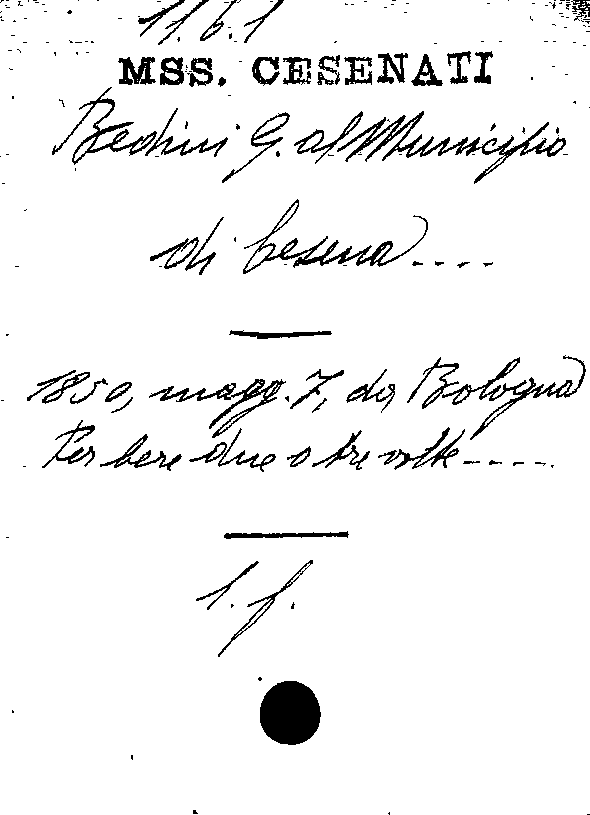 11.6.1
MSS. CESENATI
Bedini G. al Municipio
di Cesena....
1850, magg. 7, da Bologna
Per bere due o tre volte.....
1. f.